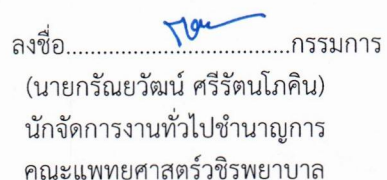 ลงชื่อ..........................................กรรมการ
(นายกรัณยวัฒน์ ศรีรัตนโภคิน)
นักจัดการงานทั่วไปชำนาญการ
คณะแพทยศาสตร์วชิรพยาบาล